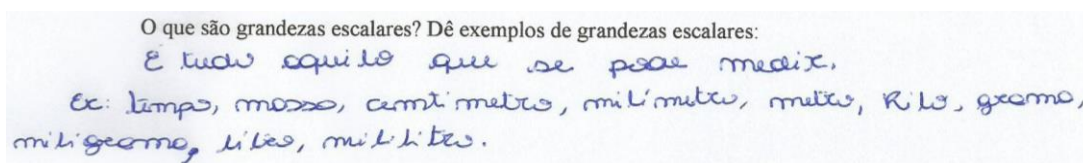 O que são grandezas escalares? Dê exemplos de grandezas escalares:
É tudo aquilo que se pode medir.
Ex: tempo, massa, centimetro, milímetro, metro, Kilo, grama,
miligrama, litro, mililitro.